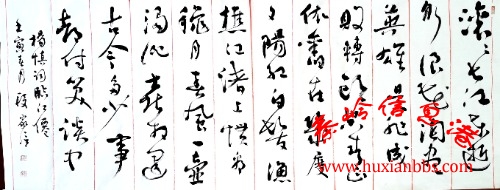 滚滚长江东逝
水浪花淘尽
英雄是非成
败转头空青山
依旧在几度
夕阳红白发渔
樵江渚上惯看
秋月春风一壶
浊酒喜相逢
古今多少事
都付笑谈中
杨慎词临江仙
壬寅五月
www.huxianbbs.com